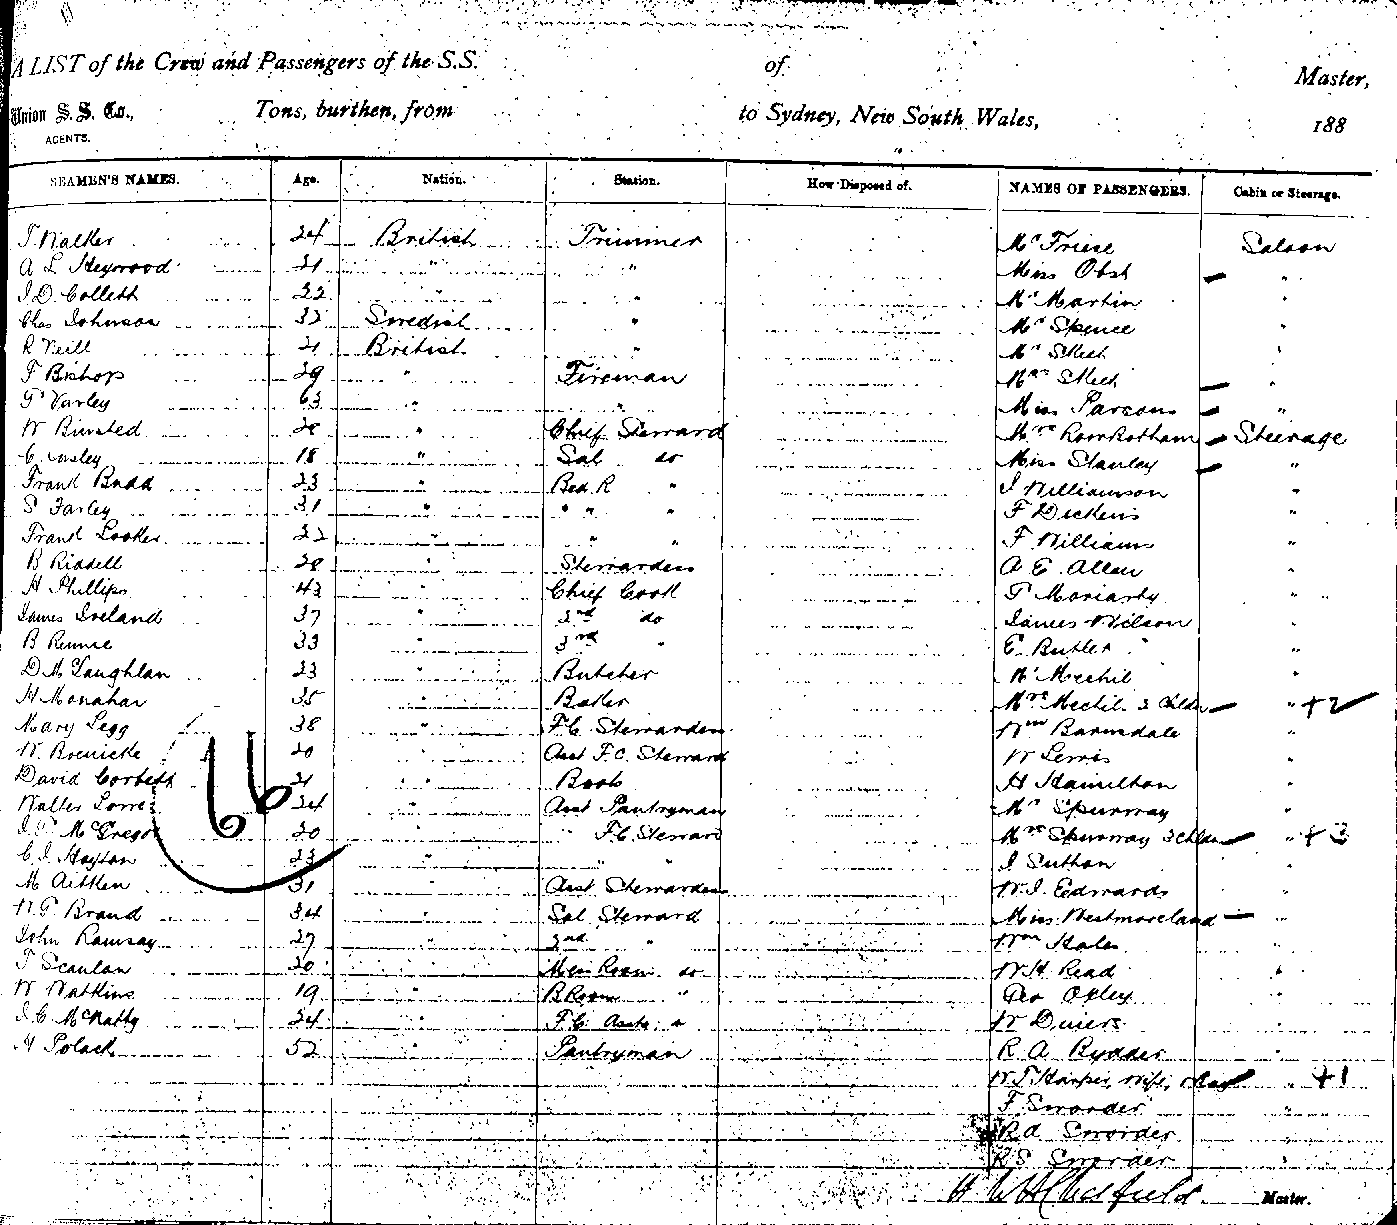 A LIST of the Crew and Passengers of the S.S. of Master,
Union S. S. Co., Tons, burthen, from to Sydney, New South Wales, 188
AGENTS.
SEAMEN'S NAMES. Age. Nation. Station. How Disposed of. NAMES OF PASSENGERS. Cabin or Steerage.
T Walker 24 British Trimmer Mr Friese Saloon
A L Heywood 21 " " Miss Obst "
J D Collett 22 " " Mr Martin "
Chas Johnson 32 Swedish " Mr Spence "
R Neill 21 British " Mr Skech "
T Bishop 29 " Fireman Mrs Skech "
P Varley 63 " " Miss Parsons "
W Binsted 28 " Chief Steward Mrs Rowbotham Steerage
18 " Sal do Miss Stanley "
Frank Budd 23 " Bed R " J Williamson "
S Farley 31 " " " " F Dickens "
Frank Looker 22 " " " F Williams "
B Riddell 28 " Stewardess A E Allen "
H Phillips 43 " Chief Cook P Moriarty "
James Ireland 37 " 2nd do James Wilson "
B Rennie 33 " 3rd " E Butler "
D McLaughlan 23 " Butcher Mr Mechil "
H Monahan 35 " Baker Mrs Mechil 2 Childn " +2
Mary Legg 38 " F.C. Stewardess Wm Barnsdale "
W Boenicke 20 " Asst F.C. Steward W Lewis "
David Corbett 21 " " Boots H Hamilton "
Walter Lowe 24 " Asst Pantryman Mr Spurway "
McGregor 20 " " F.C. Steward Mrs Spurway 3 Childn " +3
C J Hayton 23 " " " J Sutton "
M Aitken 31 " Asst Stewardess W J. Edwards "
W P Brand 34 " Sal Steward Miss Westmoreland "
John Ramsay 27 " 2nd " Wm Hales "
T Scanlan 20 " Mess Room do W H. Read "
W Watkins 19 " B Room " Geo Oxley "
J C McNatty 24 " F.C. Asst " W Diners "
H Polack 52 " Pantryman R A Rydder "
W T Harper, Wife, " +1
F. Sworder "
R A Sworder "
R S Sworder "
Master.
66